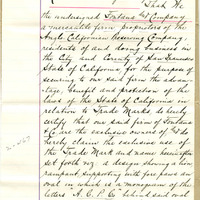 That We
the undersigned Fontana & Company
a mercantile firm proprietors of the
Anglo California Preserving Company,
residents of and doing business in
the City and County of San Francisco
State of California, for the purpose of
securing to our said firm the advan-
tage, benefit and protection of the
laws of the State of California in
relation to Trade Marks do hereby
certify that our said firm of Fontana
& Co. are the exclusive owners of & do
hereby claim the exclusive use of
the Trade Mark and name hereinafter
set forth viz. a design showing a lion
rampant, supporting with fore paws an
oval in which is a monogram of the
letters "A. C. P. Co" behind said oval